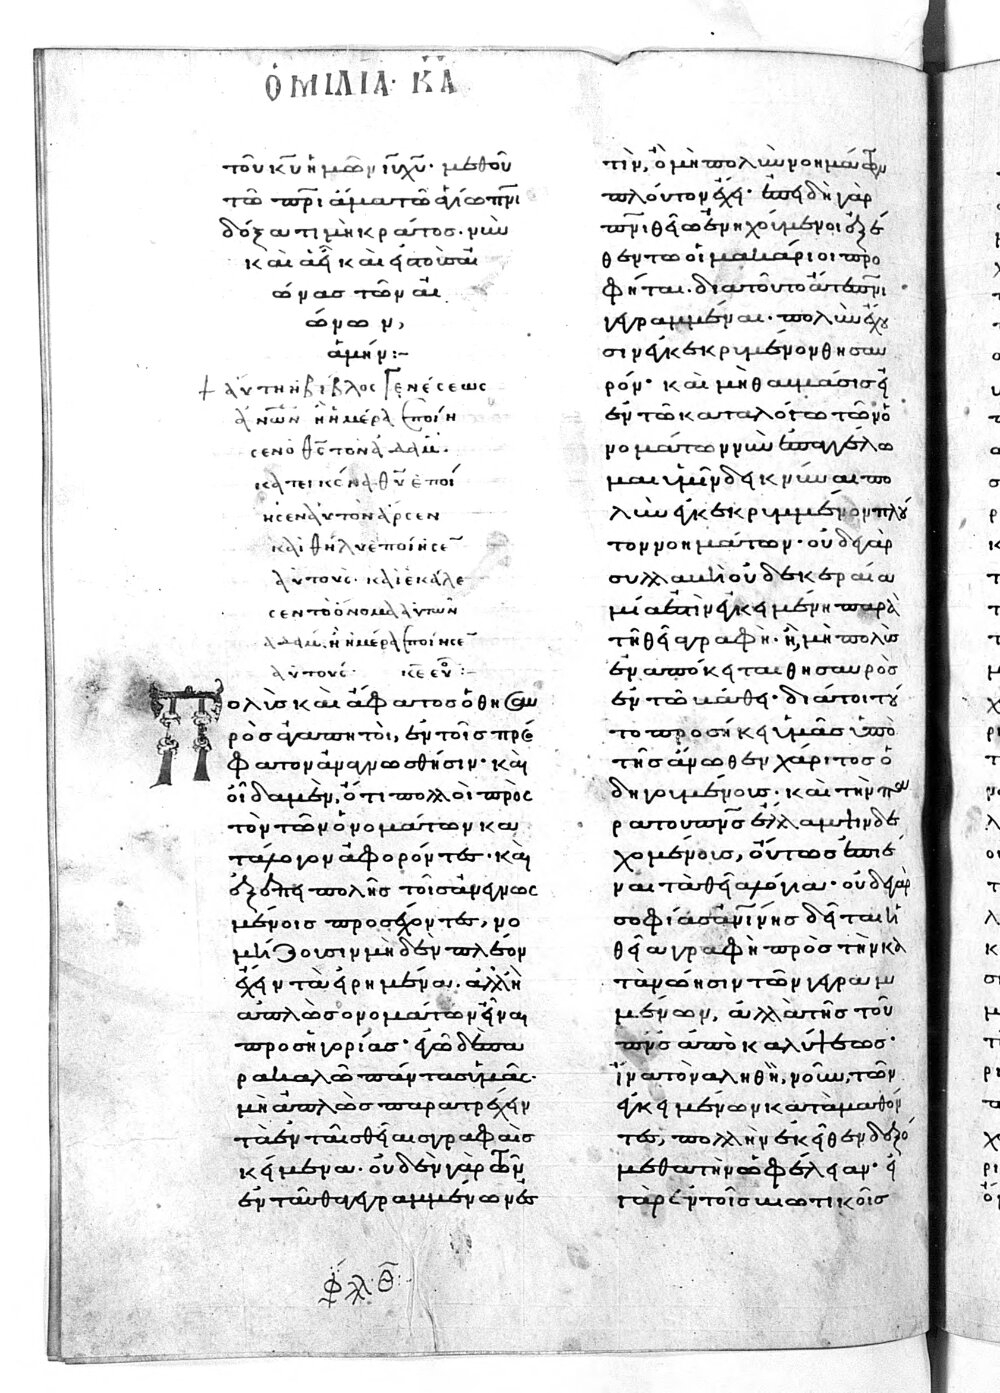 ὁμιλία· κα
τοῦ κυ ἡμῶν ιυ χυ· μεθ οὗ
τῶ πρι ἅμα τῶ ἁγίω πνι
δόξα τιμὴ κράτος· νῦν
καὶ ἀεὶ καὶ εἰς τοὺς αἰ
ῶνας τῶν αἰ
ώνων,
ἀμήν:–
αὕτη ἡ βίβλος γενέσεως
ἀνων ἡ ἡμέρα ἐποίη
σεν ὁ θς τὸν ἀδάμ·
κατ εἰκόνα θυ ἐποί
ησεν αὐτὸν ἄρσεν
καὶ θῆλυ ἐποίησεν
αὐτούς· καὶ ἐκάλε
σεν τὸ ὄνομα αὐτῶν
ἀδάμ· ἡ ἡμέρα ἐποίησεν
αὐτούς·
Πολὺς καὶ ἄφατος ὁ θησαυ
ρὸς ἀγαπητοὶ, ἐν τοῖς πρό
φατον ἀναγνωσθεῖσιν· καὶ
οἶδα μὲν, ὅτι πολλοὶ πρὸς
τὸν τῶν ὀνομάτων κα
τάλογον ἀφορόντες· καὶ
ἐξ ἐπιπολῆς τοῖς ἀνεγνως
μένοις προσέχοντες, νο
μίζουσιν μηδὲν πλέον
ἔχειν τὰ εἰρημένα· ἀλλ ἢ
ἁπλῶς ὀνομάτων εἶναι
προσηγορίας· ἐγὼ δὲ πα
ρακαλῶ πάντας ὑμᾶς·
μὴ ἁπλῶς παρατρέχειν
τὰ ἐν ταῖς θείαις γραφαῖς
κείμενα· οὐδὲν γὰρ τῶν
ἐνταῦθα γεγραμμένων ἐσ
τὶν, ὃ μὴ πολὺν νοημάτων
πλοῦτον ἔχει· ἐπειδὴ γὰρ
πνι θείω ἐνηχούμενοι ἐφθέγ
ξαντο οἱ μακάριοι προ
φῆται· διὰ τοῦτο ἅτε πνι
γεγραμμέναι· πολὺν ἔχου
σιν ἐγκεκρυμένον θησαυ
ρόν· καὶ μὴ θαυμάσις εἰ
ἐν τῶ καταλόγω τῶν ὀ
νομάτων νῦν ἐπαγγέλλο
μαι ὑμῖν δεικνύναι πο
λὺν ἐγκεκρυμμένον πλοῦ
τον νοημάτων· οὐδὲ γὰρ
συλλαβὴ οὐδὲ κεραία
μία ἐστὶν ἐγκειμένη παρὰ
τῆ θεία γραφῆ· ἧ μὴ πολὺς
ἐναπόκειται θησαυρὸς
ἐν τῶ βάθει· διά τοι τοῦ
το προσήκει ὑμᾶς ὑπὸ
τῆς ἄνωθεν χάριτος ὁ
δηγουμένοις· καὶ τὴν πα
ρὰ τοῦ πνς ἔλλαμψιν δε
χομένοις, οὕτως ἐπιέ
ναι τὰ θεῖα λόγια· οὐδὲ γὰρ
σοφίας ἀνίνης δεῖται ἡ
θεία γραφὴ πρὸς τὴν κα
τανόησιν τῶν γεγραμ
μένων, ἀλλὰ τῆς τοῦ
πνς ἀποκαλύψεως·
ἵνα τὸν ἀληθῆ νοῦν, τῶν
ἐγκειμένων καταμαθόν
τες, πολλὴν ἐκεῖθεν δεξό
μεθα τὴν ὠφέλειαν· εἰ
γὰρ ἐν τοῖς βιωτικοῖς